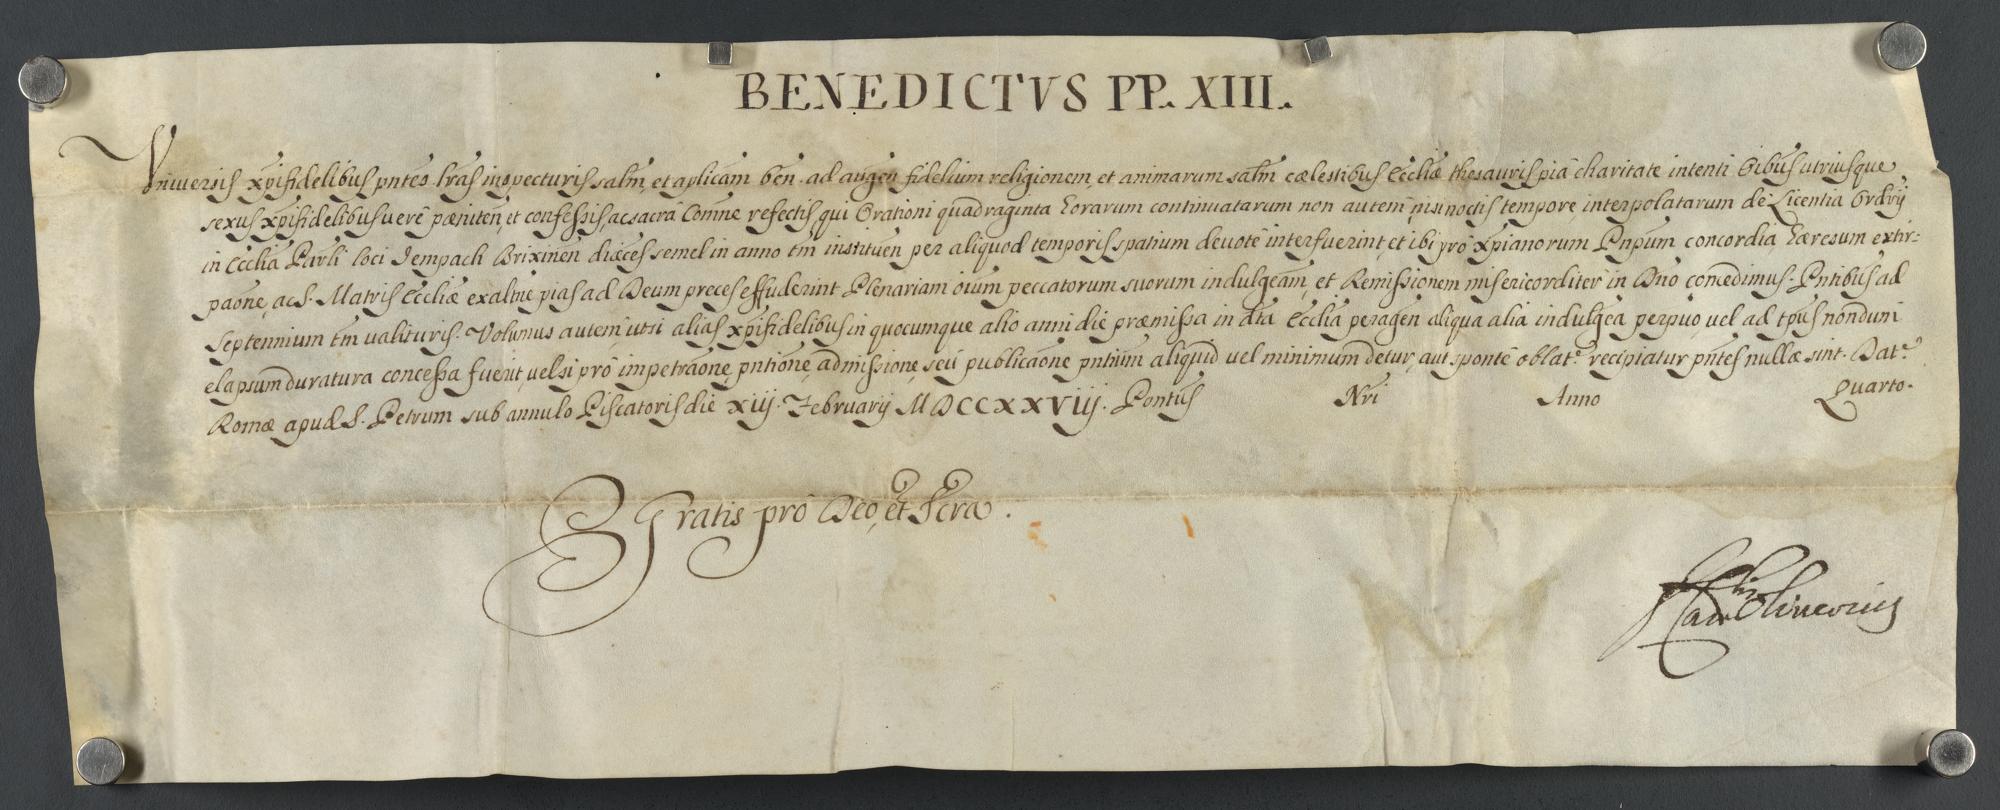 BENEDICTVS PP. XIII.
Vniuersis xpifidelibus pntes lras inspecturis salm, et aplicam ben. ad augen fidelium religionem, et animarum salm cælestibus Eccliæ thesauris pia charitate intenti Oibus utriusque
sexus xpifidelibus uerè pæniten, et confessis, ac sacra Comne refectis, qui Orationi quadraginta horarum continuatarum non autem nisi noctis tempore interpolatarum de Licentia Ordrij
in Ecclia Parli loci Jempach Brixinen diæces semel in anno tm instituen per aliquod temporis spatium deuotè interfuerint, et ibi pro xpianorum Pnpum concordia, hæresum extir-
paone, ac S. Matris Eccliæ exaltne pias ad Deum preces effuderint Plenariam oium peccatorum suorum indulgeam, et Remissionem misericorditer in Dno concedimus. Pntibus ad
septennium tm ualituris. Volumus autem ut si alias xpifidelibus in quocumque alio anni die præmissa in dta Ecclia peragen aliqua alia indulgea perpuo, uel ad tpus nondum
elapsum duratura concessa fuerit, uel si pro impetraone, pntione, admissione, seu publicaone pntium aliquid uel minimum detur, aut sponte oblat. recipiatur pntes nullæ sint. Dat.
Romæ apud S. Petrum sub annulo Piscatoris die xiij. Februarij MDCCXXViij. Pontus Nri Anno Quarto.
Gratis pro Deo, et Scra.